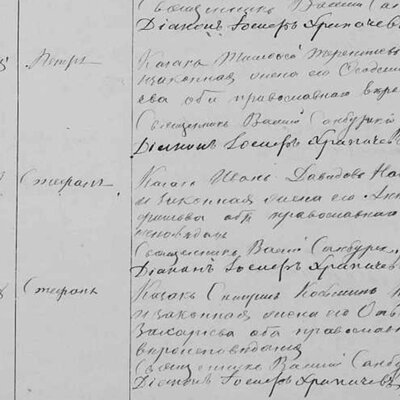 Священникъ Василій Самбурск
Діаконъ Іосифъ Храпачев
Петръ
Казакъ Тимоѳей Терентіев
и законная жена его Ѳеодос
ева оба православнаго вѣро
Священникъ Василій Самбурскій
Діаконъ Іосифъ Храпачевъ
Стефанъ
Казакъ Иванъ Давидовъ
и законная жена его Анн
оба православнаго
исповѣданія
Священникъ Василій Самбурск
Діаконъ Іосифъ Храпачев
Стефанъ
Казакъ Спиридонъ Косминъ
и законная жена его
Захаріева оба православна
вѣроисповѣданія
Священникъ Василій Самбу
Діаконъ Іосифъ Храпачев